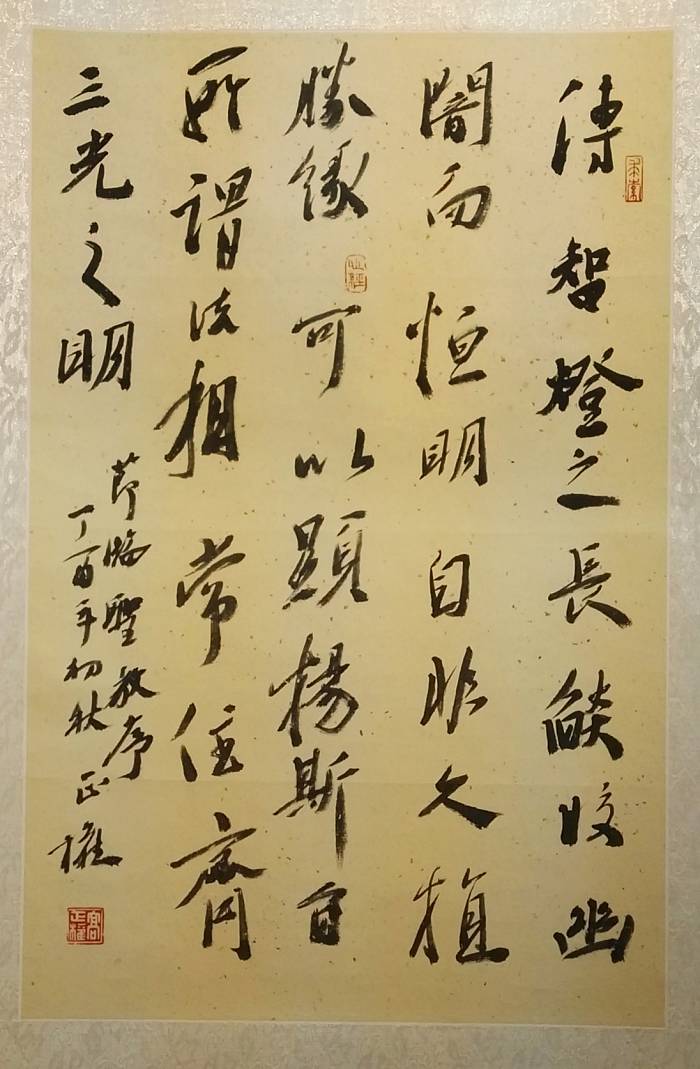 傳智燈之長燄皎幽
闇而恒明自非久植
勝緣可以顯楊斯旨
所謂法相常住齊
三光之明
節臨聖教序
丁酉年初秋正權